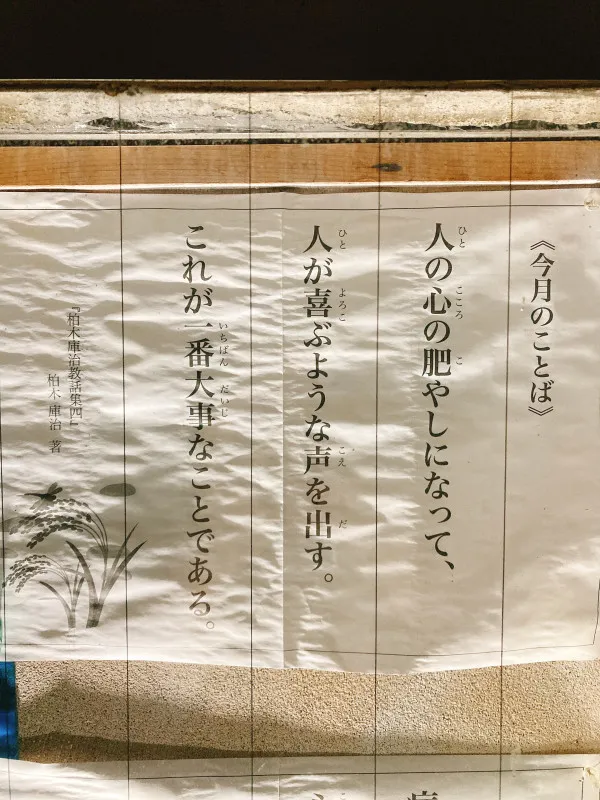 《今月のことば》
人の心の肥やしになって、
人が喜ぶような声を出す。
これが一番大事なことである。
『柏木庫治教話集四』
柏木庫治 著